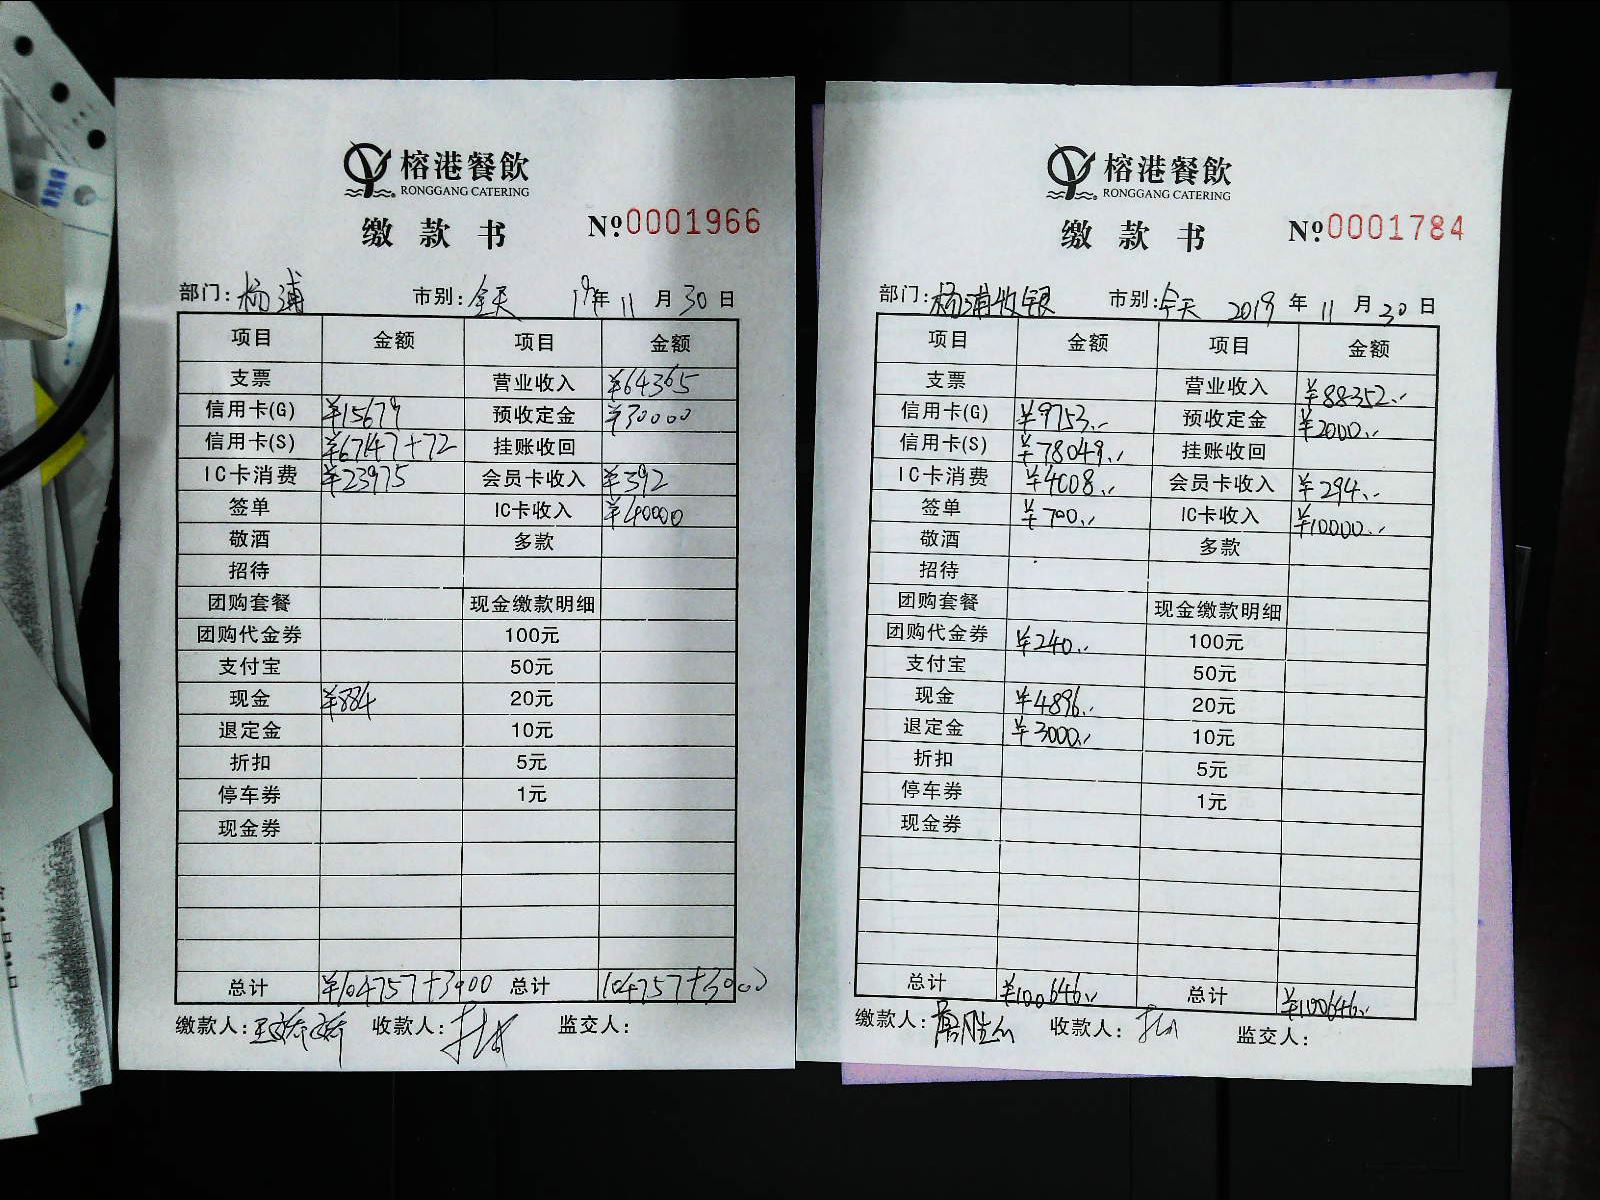 榕港餐飲
RONGGANG CATERING
缴款书 №0001966
部门：杨浦 市别：全天 19年 11月 30日
项目 金额 项目 金额
支票 营业收入 ¥64365
信用卡(G) ¥15679 预收定金 ¥30000
信用卡(S) ¥67147+72 挂账收回
IC卡消费 ¥23975 会员卡收入 ¥392
签单 IC卡收入 ¥40000
敬酒 多款
招待
团购套餐 现金缴款明细
团购代金券 100元
支付宝 50元
现金 ¥884 20元
退定金 10元
折扣 5元
停车券 1元
现金券
总计 ¥104757+3000 总计 104757+3000
缴款人：王娇娇 收款人： 监交人：
榕港餐飲
RONGGANG CATERING
缴款书 №0001784
部门：杨浦收银 市别：全天 2019年 11月 30日
项目 金额 项目 金额
支票 营业收入 ¥88352.-
信用卡(G) ¥9753.- 预收定金 ¥2000.-
信用卡(S) ¥78049.- 挂账收回
IC卡消费 ¥4008.- 会员卡收入 ¥294.-
签单 ¥700.- IC卡收入 ¥10000.-
敬酒 多款
招待
团购套餐 现金缴款明细
团购代金券 ¥240.- 100元
支付宝 50元
现金 ¥4896.- 20元
退定金 ¥3000.- 10元
折扣 5元
停车券 1元
现金券
总计 ¥100646.- 总计 ¥100646.-
缴款人： 收款人： 监交人：